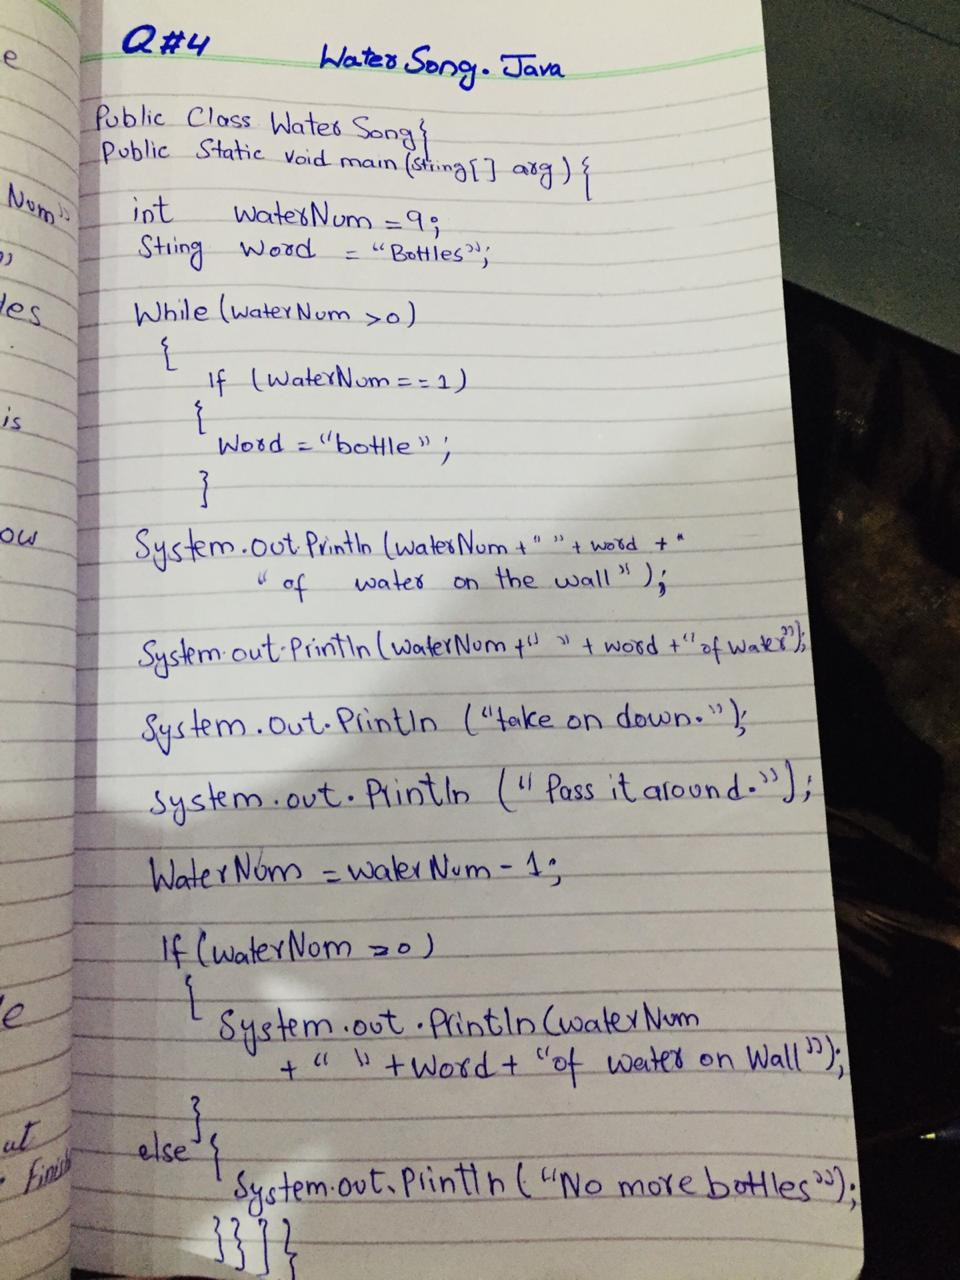 e
Num"
"
les
is
ow
e
ut
Finish
Q#4
WaterSong.Java
Public Class WaterSong{
Public Static void main(String[] arg) {
int waterNum = 9;
String Word = "Bottles";
While (waterNum >0)
{
If (waterNum == 1)
{
Word = "bottle" ;
}
System.out.Println (waterNum +" " + word + "
" of water on the wall" );
System.out.Println (waterNum +" " + word +"of water");
System.out.Println ("take on down.");
System.out.Println (" Pass it around.");
WaterNum = waterNum - 1;
If (waterNum >0)
{
System.out.Println (waterNum
+ " " + Word + "of water on Wall");
}
else {
System.out.Println ( "No more bottles");
}}}}